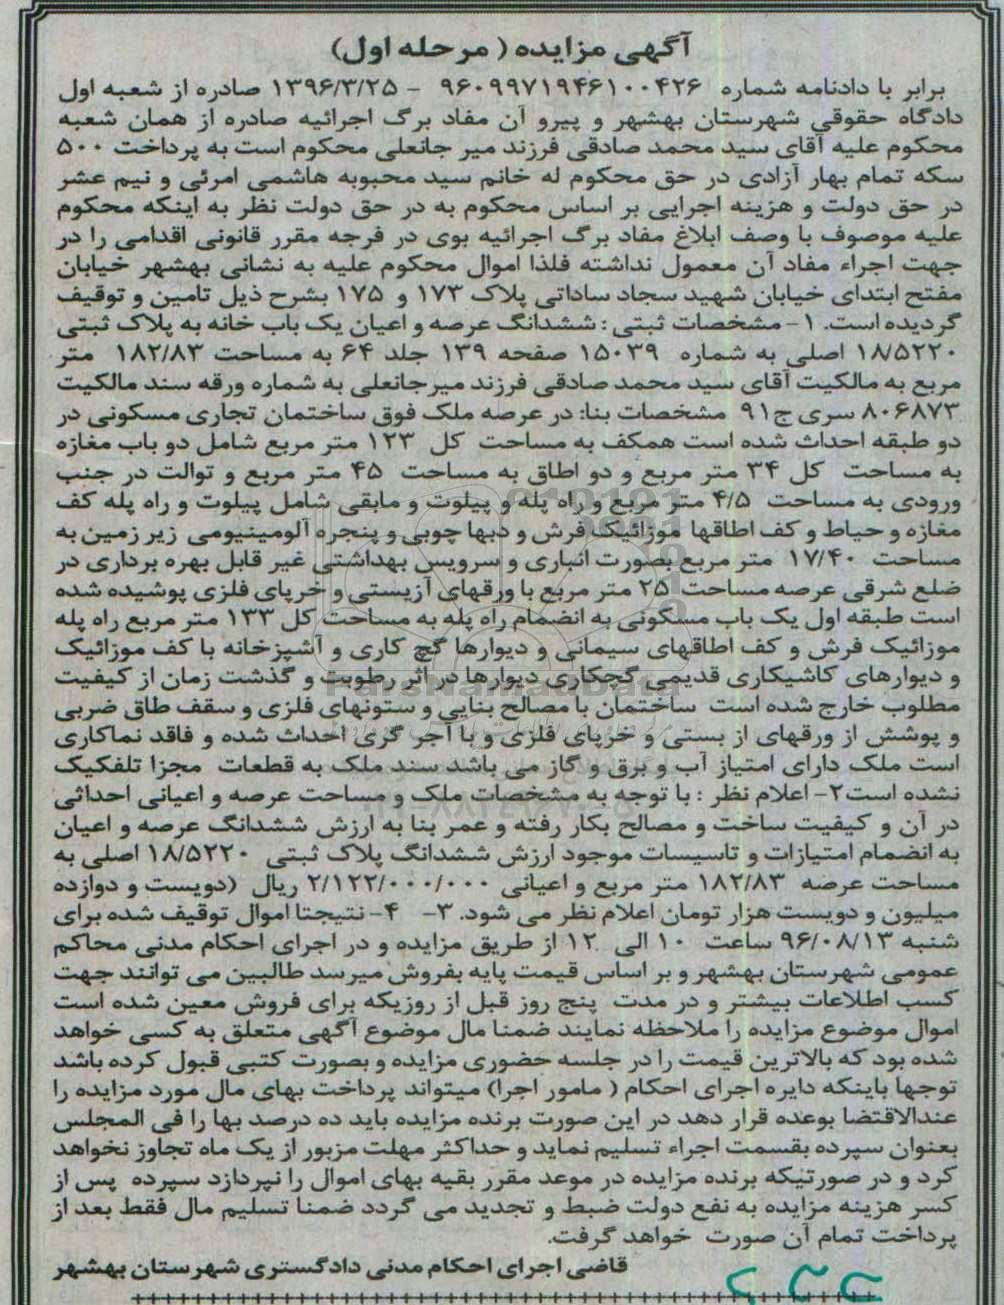 آگهی مزایده ( مرحله اول)
برابر با دادنامه شماره ۹۶۰۹۹۷۱۹۴۶۱۰۰۴۲۶ - ۱۳۹۶/۳/۲۵ صادره از شعبه اول
دادگاه حقوقی شهرستان بهشهر و پیرو آن مفاد برگ اجرائیه صادره از همان شعبه
محکوم علیه آقای سید محمد صادقی فرزند میر جانعلی محکوم است به پرداخت ۵۰۰
سکه تمام بهار آزادی در حق محکوم له خانم سید محبوبه هاشمی امرئی و نیم عشر
در حق دولت و هزینه اجرایی بر اساس محکوم به در حق دولت نظر به اینکه محکوم
علیه موصوف با وصف ابلاغ مفاد برگ اجرائیه بوی در فرجه مقرر قانونی اقدامی را در
جهت اجراء مفاد آن معمول نداشته فلذا اموال محکوم علیه به نشانی بهشهر خیابان
مفتح ابتدای خیابان شهید سجاد ساداتی پلاک ۱۷۳ و ۱۷۵ بشرح ذیل تامین و توقیف
گردیده است. ۱- مشخصات ثبتی : ششدانگ عرصه و اعیان یک باب خانه به پلاک ثبتی
۱۸/۵۲۲۰ اصلی به شماره ۱۵۰۳۹ صفحه ۱۳۹ جلد ۶۴ به مساحت ۱۸۲/۸۳ متر
مربع به مالکیت آقای سید محمد صادقی فرزند میرجانعلی به شماره ورقه سند مالکیت
۸۰۶۸۷۳ سری ج۹۱ مشخصات بنا: در عرصه ملک فوق ساختمان تجاری مسکونی در
دو طبقه احداث شده است همکف به مساحت کل ۱۲۳ متر مربع شامل دو باب مغازه
به مساحت کل ۳۴ متر مربع و دو اطاق به مساحت ۴۵ متر مربع و توالت در جنب
ورودی به مساحت ۴/۵ متر مربع و راه پله و پیلوت و مابقی شامل پیلوت و راه پله کف
مغازه و حیاط و کف اطاقها موزائیک فرش و دبها چوبی و پنجره آلومینیومی زیر زمین به
مساحت ۱۷/۴۰ متر مربع بصورت انباری و سرویس بهداشتی غیر قابل بهره برداری در
ضلع شرقی عرصه مساحت ۲۵ متر مربع با ورقهای آزیستی و خرپای فلزی پوشیده شده
است طبقه اول یک باب مسکونی به انضمام راه پله به مساحت کل ۱۳۳ متر مربع راه پله
موزائیک فرش و کف اطاقهای سیمانی و دیوارها گچ کاری و آشپزخانه با کف موزائیک
و دیوارهای کاشیکاری قدیمی گچکاری دیوارها در اثر رطوبت و گذشت زمان از کیفیت
مطلوب خارج شده است ساختمان با مصالح بنایی و ستونهای فلزی و سقف طاق ضربی
و پوشش از ورقهای از بستی و خرپای فلزی و با آجر گری احداث شده و فاقد نماکاری
است ملک دارای امتیاز آب و برق و گاز می باشد سند ملک به قطعات مجزا تلفکیک
نشده است۲- اعلام نظر : با توجه به مشخصات ملک و مساحت عرصه و اعیانی احداثی
در آن و کیفیت ساخت و مصالح بکار رفته و عمر بنا به ارزش ششدانگ عرصه و اعیان
به انضمام امتیازات و تاسیسات موجود ارزش ششدانگ پلاک ثبتی ۱۸/۵۲۲۰ اصلی به
مساحت عرصه ۱۸۲/۸۳ متر مربع و اعیانی ۲/۱۲۲/۰۰۰/۰۰۰ ریال (دویست و دوازده
میلیون و دویست هزار تومان اعلام نظر می شود. ۳- ۴- نتیجتا اموال توقیف شده برای
شنبه ۹۶/۰۸/۱۳ ساعت ۱۰ الی ۱۲ از طریق مزایده و در اجرای احکام مدنی محاکم
عمومی شهرستان بهشهر و بر اساس قیمت پایه بفروش میرسد طالبین می توانند جهت
کسب اطلاعات بیشتر و در مدت پنج روز قبل از روزیکه برای فروش معین شده است
اموال موضوع مزایده را ملاحظه نمایند ضمنا مال موضوع آگهی متعلق به کسی خواهد
شده بود که بالاترین قیمت را در جلسه حضوری مزایده و بصورت کتبی قبول کرده باشد
توجها باینکه دایره اجرای احکام ( مامور اجرا) میتواند پرداخت بهای مال مورد مزایده را
عندالاقتضا بوعده قرار دهد در این صورت برنده مزایده باید ده درصد بها را فی المجلس
بعنوان سپرده بقسمت اجراء تسلیم نماید و حداکثر مهلت مزبور از یک ماه تجاوز نخواهد
کرد و در صورتیکه برنده مزایده در موعد مقرر بقیه بهای اموال را نپردازد سپرده پس از
کسر هزینه مزایده به نفع دولت ضبط و تجدید می گردد ضمنا تسلیم مال فقط بعد از
پرداخت تمام آن صورت خواهد گرفت.
قاضی اجرای احکام مدنی دادگستری شهرستان بهشهر
ParsNamadData